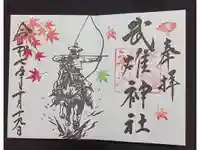 奉拝
武雄神社
令和七年十月十九日